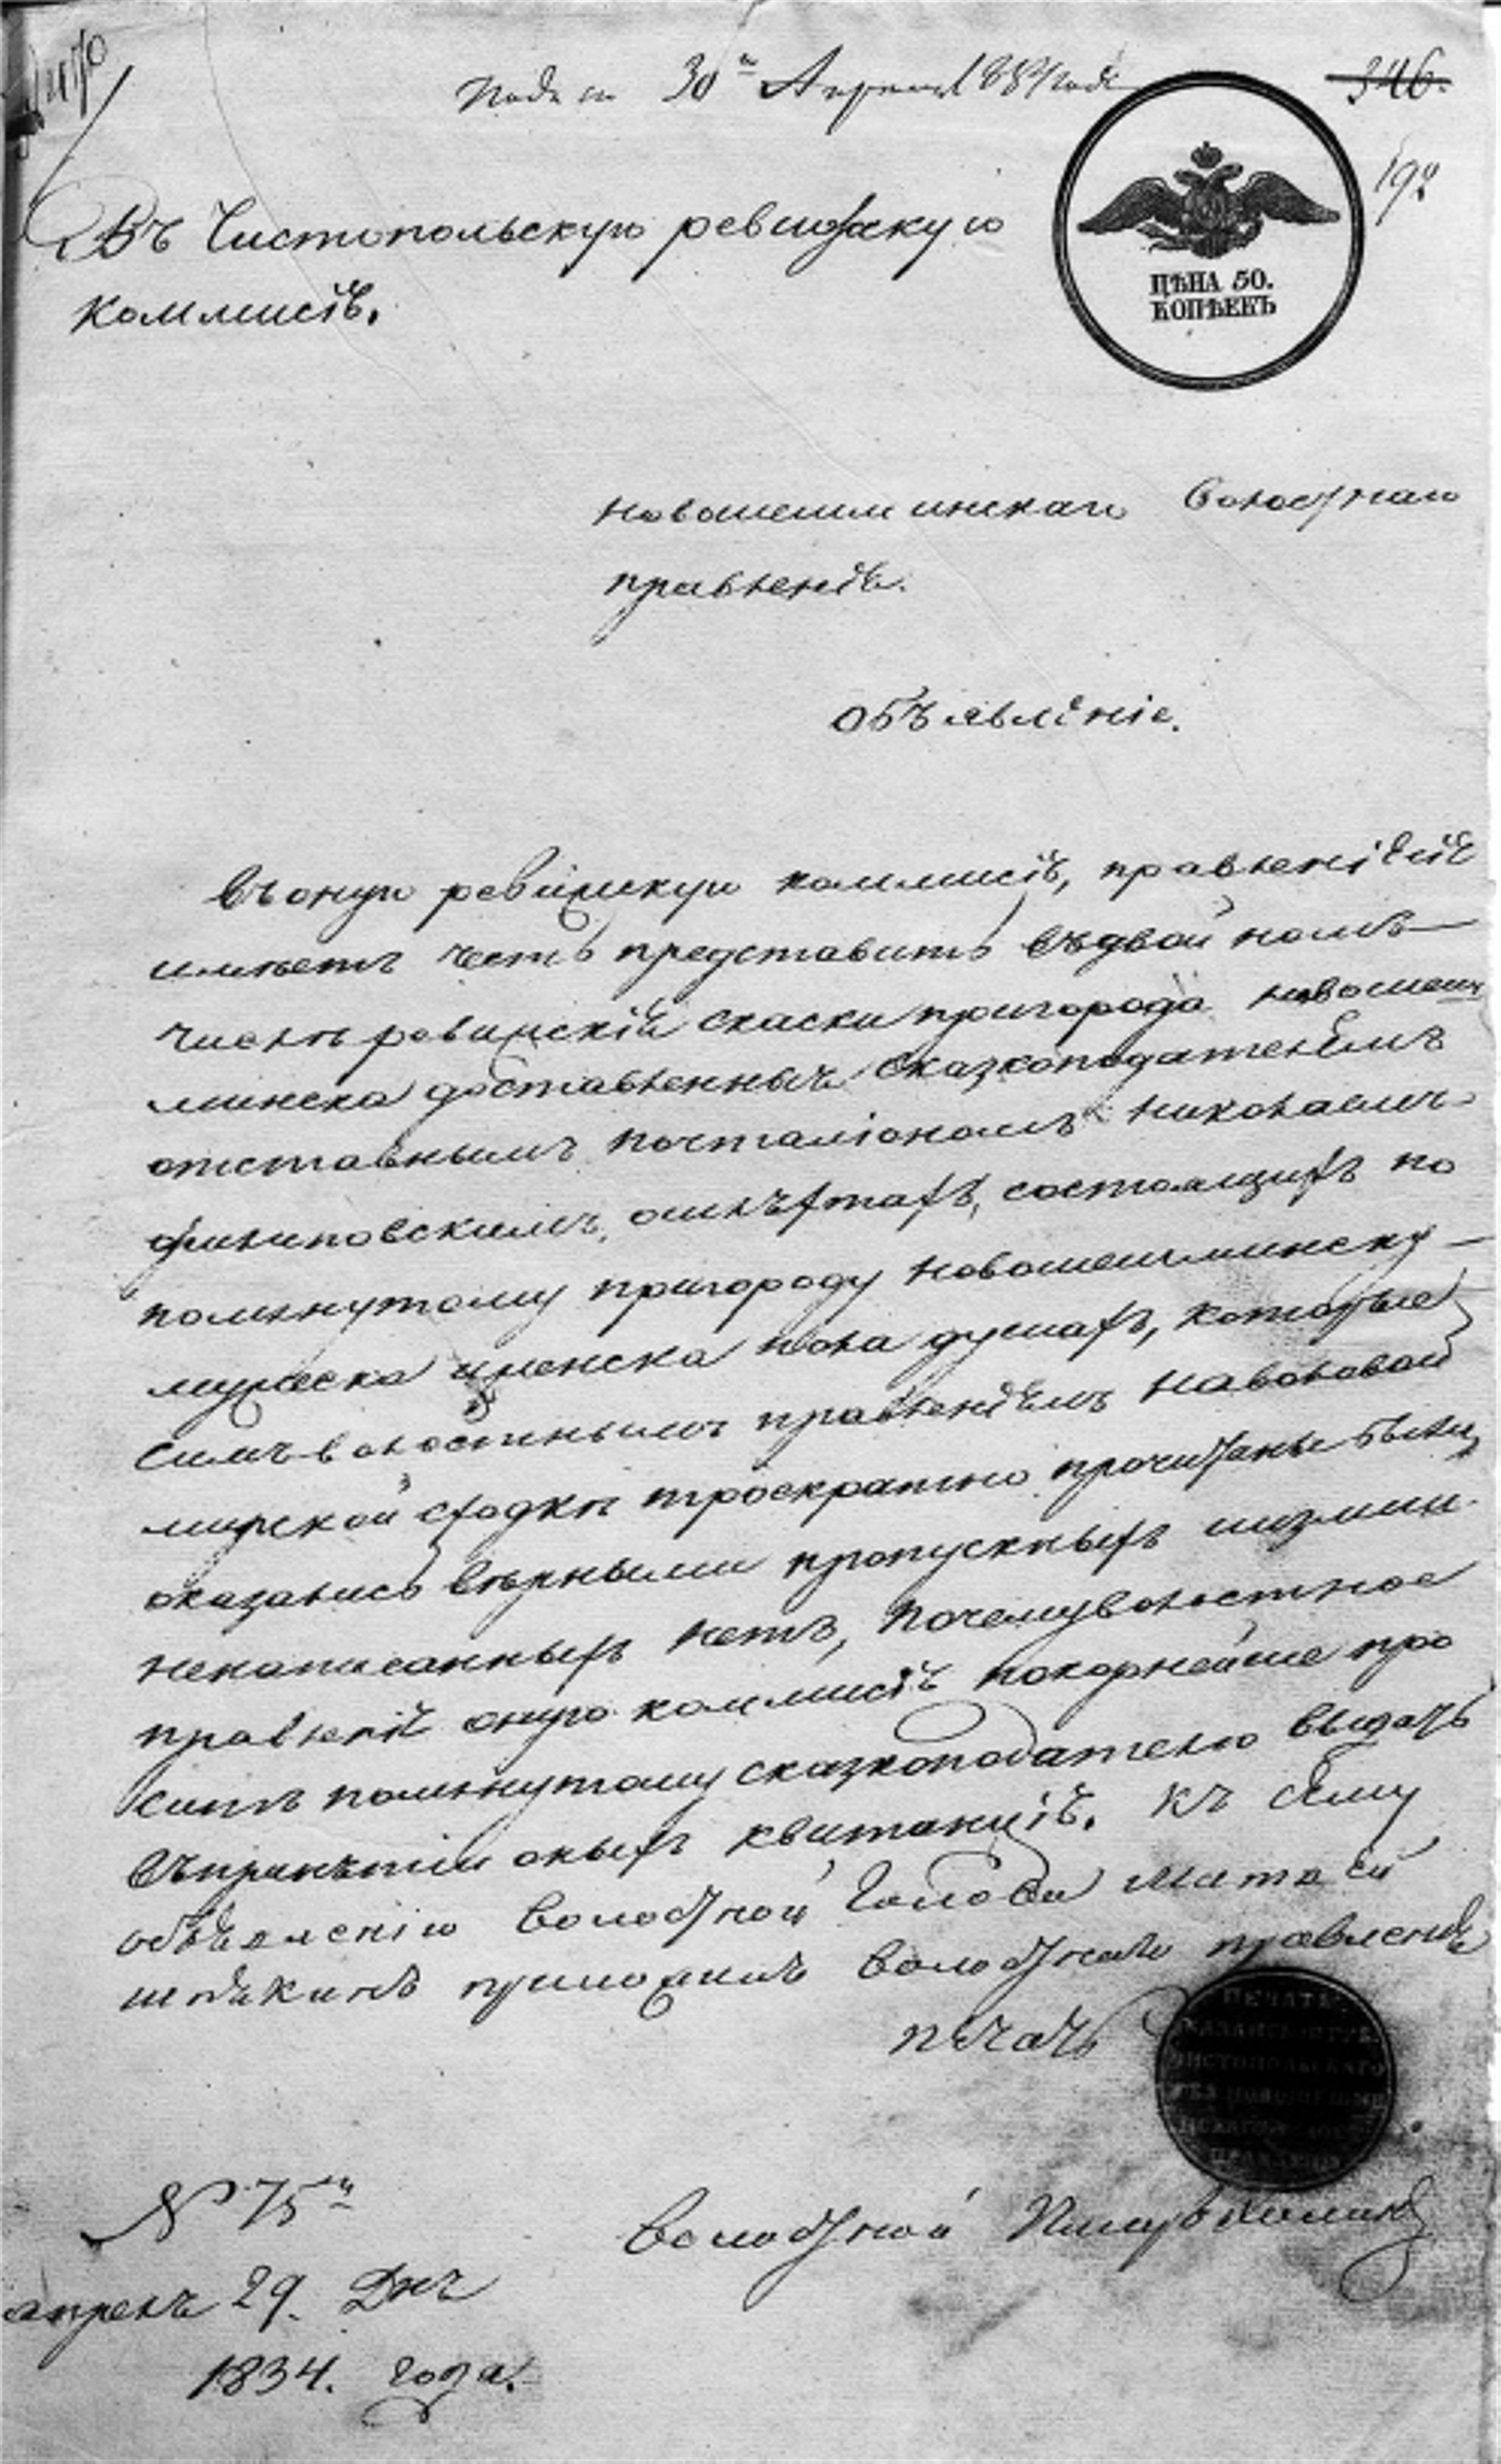 Пода 30го Апреля 1834 года
346.
192
Въ Чистопольскую ревизскую
коммисiю.
ЦѢНА 50.
КОПѢЕКЪ
Новошешминскаго Волостнаго
правленiя.
Объявленiе.
Въ оную ревижскую коммисiю, правленiе сiе
имѣетъ честь представить въдвойномъ
числѣ ревижскiя скаски пригорода Новошеш
минска доставленныя сказкоподателемъ
отставнымъ почталiономъ Николаемъ
Филиповскимъ, о состоящихъ по
помянутому пригороду Новошешминску
мужеска иженска пола душахъ, которые
симъ волостнымъ правленiемъ
мирской сходки троекратно прочитаны были,
оказались вѣрными пропускныхъ
ненаписанныхъ нетъ, почему волостное
правленiе оную коммисiю покорнейше про
ситъ помянутому сказкоподателю выдачь
въпринятiи оныхъ квитанцiю. Къ сему
объявленiю волостной Голова Матвей
приложилъ волостнаго правленiя
печать
ПЕЧАТЬ
КАЗАНСКОЙ ГУБ.
ЧИСТОПОЛЬСКАГО
ПРАВЛЕНIЯ
Волостной Писарь
№ 75й
апреля 29. Дня
1834. года.